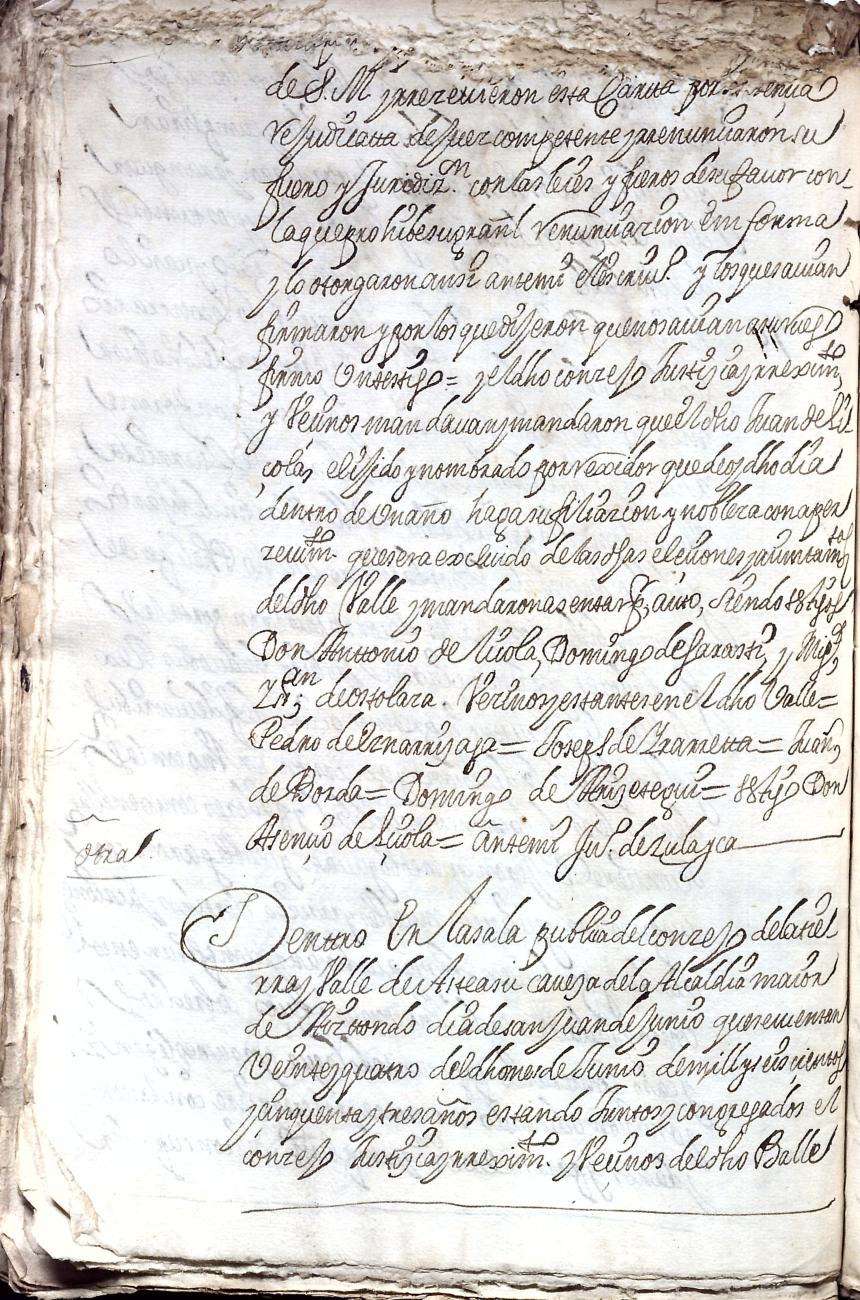 de S. M. y rrecivieron esta Carta por sentencia
rejudicatta de juez competente y rrenunciaron su
fuero y Juridizn. con las leies y fueros de su favor con
la que prohibe su granl. renunciacion em forma
y lo otorgaron ansi ante mi el escrivo. y los que savian
firmaron y por los que dijeron que no savian a su ruego
firmo Un testigo = y el dho conzejo Justiçia y rreximto.
y Veçinos mandavan y mandaron que el dho Juan de Li
colas, elijido y nombrado por rexidor que de oy dho dia
dentro de Un año haga su filiazion y nobleza con aper
zeuimto. que sera excluido de las dhas eleciones y auntamtos
del dho Valle y mandaron asentar por auto, siendo testigos
Don Anttonio de Liçola, Domingo de Garastti, y Migl.
Zn.an de ostolaza. Vecinos y estantes en el dho Valle =
Pedro de Eznarriyaga = Joseph de Yrarretta = Juan
de Borda = Domingo de Ariztegui = testigo Don
Asençio de Liçola = ante mi Ju. de Zulayca
otra.
Dentro En la sala publica del conzejo de la tie
rra y Valle de Asteasu caveza de la Alcaldia maior
de Aiztondo dia de san Juan de Junio que se cuentan
Veinte y quatro del dho mes de Junio de mill y seis cientos
y cinquenta y tres años estando Juntos y congregados el
conzejo Justiçia y rreximto. y Veçinos del dho Balle